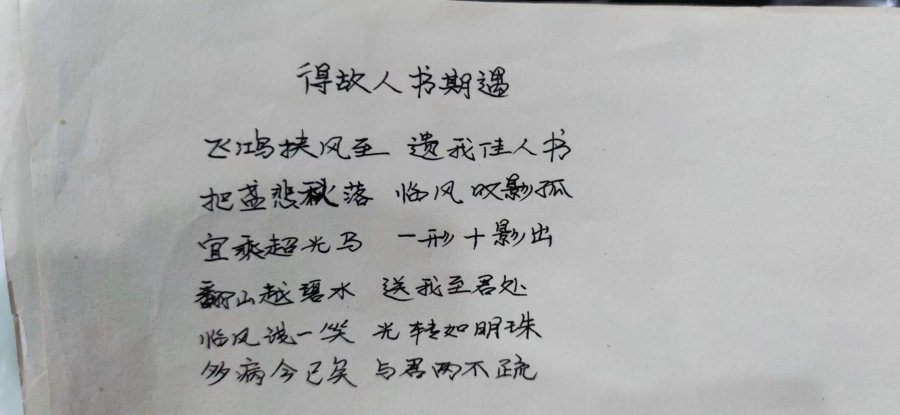 得故人书期遇
飞鸿挟风至 遗我佳人书
把盏悲秋落 临风叹影孤
宜乘超光马 一形十影出
翻山越碧水 送我至君处
临风谈一笑 光转如明珠
多病今已矣 与君两不疏